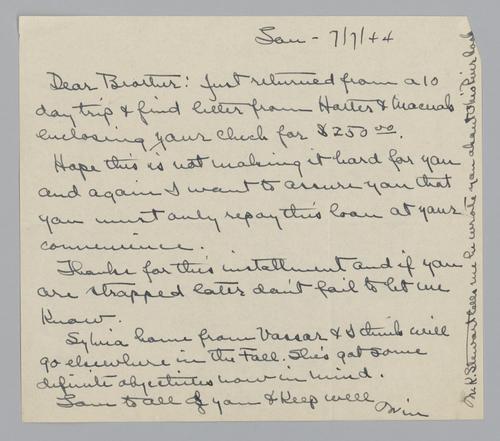 Sau - 7/7/44
Dear Brother: Just returned from a 10
day trip & find letter from Harter &
enclosing your check for $250 00.
Hope this is not making it hard for you
and again I want to assure you that
you must only repay this loan at your
convenience.
Thanks for this installment and if you
are strapped later don't fail to let me
know.
Sylvia home from Vassar & I think will
go elsewhere in the Fall. She's got some
definite objectives now in mind.
to all of you & Keep well
Win
Mr. K. Stewart tells me he wrote you about this